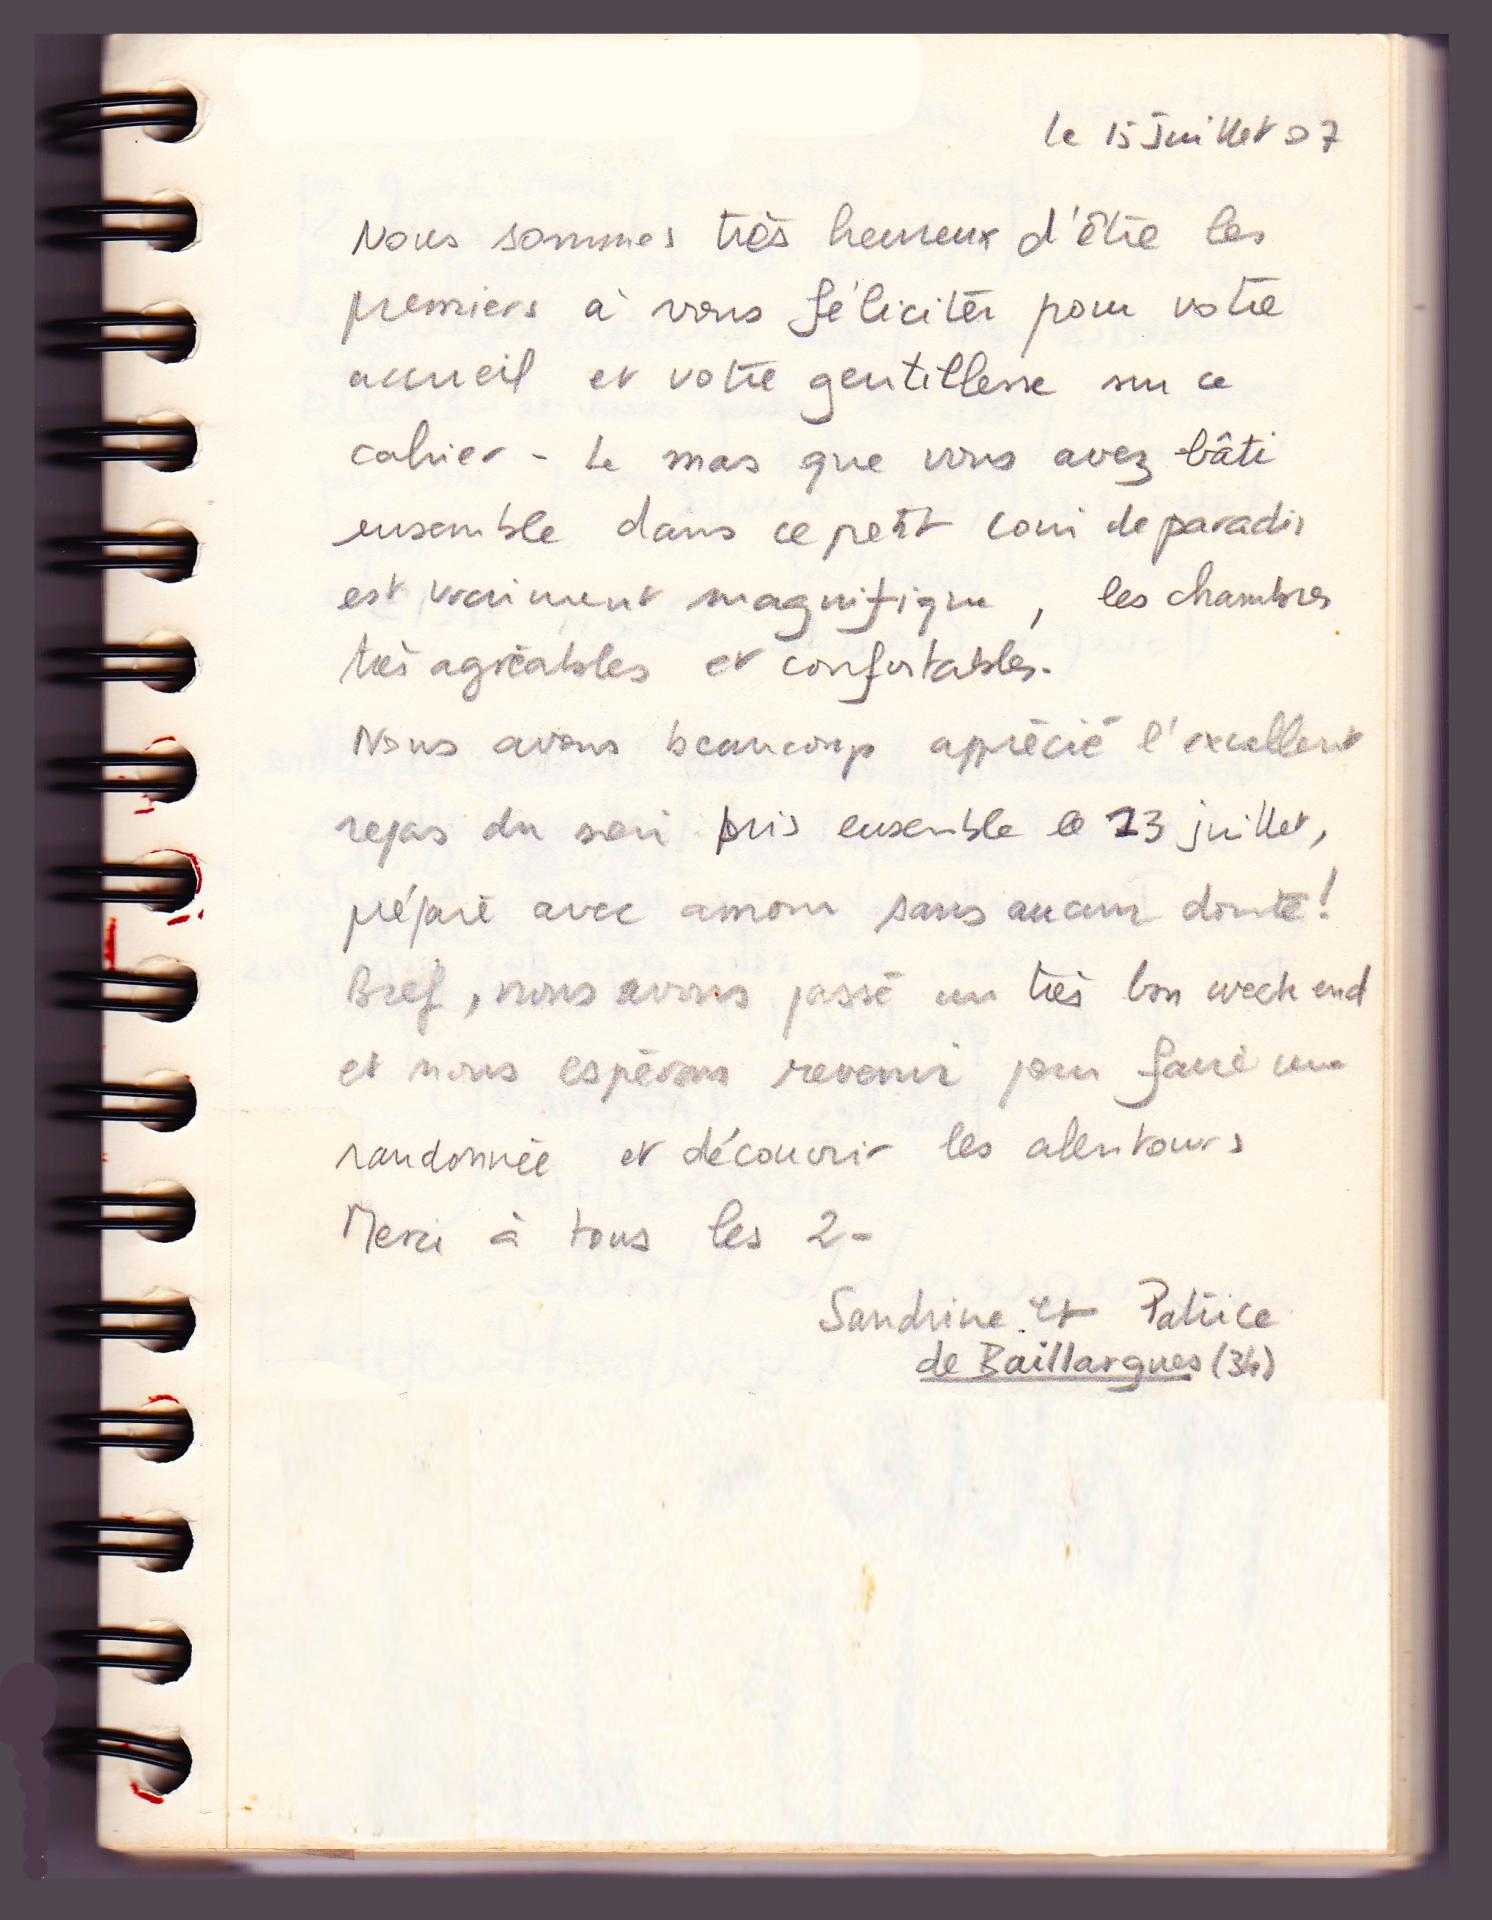 le 15 Juillet 07
Nous sommes très heureux d'être les
premiers à vous féliciter pour votre
accueil et votre gentillesse sur ce
cahier - Le mas que vous avez bâti
ensemble dans ce petit coin de paradis
est vraiment magnifique, les chambres
très agréables et confortables.
Nous avons beaucoup apprécié l'excellent
repas du soir pris ensemble le 13 juillet,
préparé avec amour sans aucun doute!
Bref, nous avons passé un très bon week end
et nous espérons revenir pour faire une
randonnée et découvrir les alentours
Merci à tous les 2-
Sandrine et Patrice
de Baillargues (34)